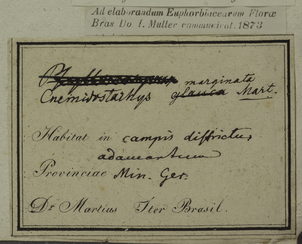 Ad elaborandum Euphorbiacearum Florae
Bras. Dr. J. Müller communicat. 1873
marginata
Cnemidostachys glauca Mart.
Habitat in campis districtus
adamantum
Provinciae Min. Ger.
Dr Martius Iter Brasil.